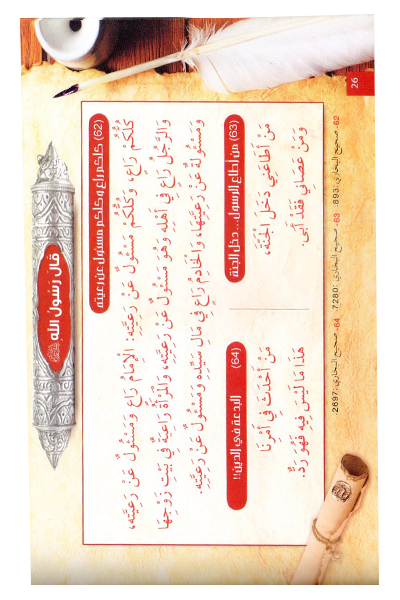 قال رسول الله ﷺ
(62) كلكم راع وكلكم مسئول عن رعيته
كُلُّكُمْ رَاعٍ، وَكُلُّكُمْ مَسْئُولٌ عَنْ رَعِيَّتِهِ: الْإِمَامُ رَاعٍ وَمَسْئُولٌ عَنْ رَعِيَّتِهِ،
وَالرَّجُلُ رَاعٍ فِي أَهْلِهِ وَهُوَ مَسْئُولٌ عَنْ رَعِيَّتِهِ، وَالْمَرْأَةُ رَاعِيَةٌ فِي بَيْتِ زَوْجِهَا
وَمَسْئُولَةٌ عَنْ رَعِيَّتِهَا، وَالْخَادِمُ رَاعٍ فِي مَالِ سَيِّدِهِ وَمَسْئُولٌ عَنْ رَعِيَّتِهِ.
(63) من أطاع الرسول .. دخل الجنة
مَنْ أَطَاعَنِي دَخَلَ الْجَنَّةَ،
وَمَنْ عَصَانِي فَقَدْ أَبَى.
(64) البدعة في الدين!!
مَنْ أَحْدَثَ فِي أَمْرِنَا
هَذَا مَا لَيْسَ فِيهِ فَهُوَ رَدٌّ.
62- صحيح البخاري: 893. 63- صحيح البخاري: 7280. 64- صحيح البخاري: 2697.
26